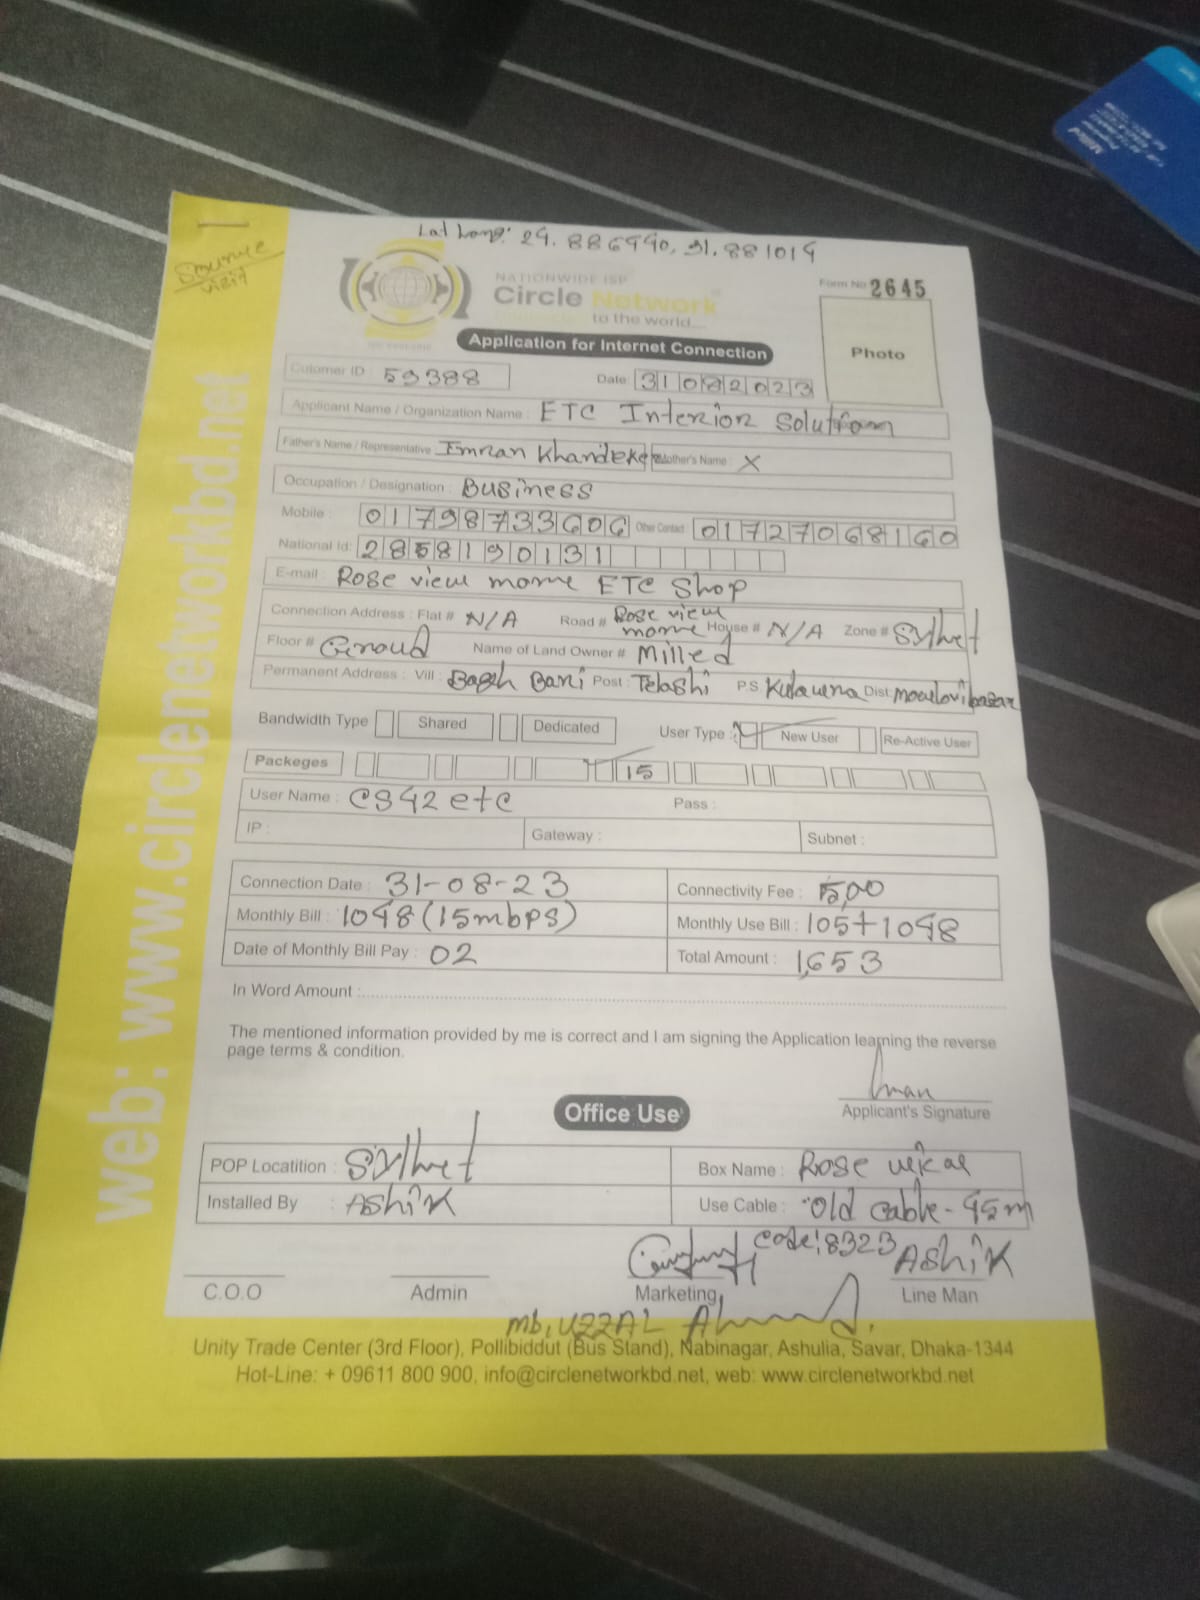 Lat Long: 24.886440, 91.881014
Source
visit
NATIONWIDE ISP
Circle Network
to the world....
Form No 2645
Photo
Application for Internet Connection
Cutomer ID : 59388 Date: 31082023
Applicant Name / Organization Name : ETC Interior Solution
Father's Name / Representative Emran Khandeker Mother's Name : X
Occupation / Designation : Business
Mobile : 01798733606 Other Contact 01727068160
National Id: 2858190131
E-mail : Rose view mome ETC Shop
Connection Address : Flat # N/A Road # Rose view mome House # N/A Zone # Sylhet
Floor # Geroud Name of Land Owner # Milled
Permanent Address : Vill : Bagh Bari Post : Telashi P.S Kulaura Dist: moulovibazar
Bandwidth Type Shared Dedicated User Type : New User Re-Active User
Packeges 15
User Name : CS42etc Pass :
IP : Gateway : Subnet :
Connection Date : 31-08-23 Connectivity Fee : 500
Monthly Bill : 1048 (15mbps) Monthly Use Bill : 105+1048
Date of Monthly Bill Pay : 02 Total Amount : 1,653
In Word Amount :
The mentioned information provided by me is correct and I am signing the Application learning the reverse
page terms & condition.
Iman
Applicant's Signature
Office Use
POP Locatition : Sylhet Box Name : Rose
Installed By : Ashik Use Cable : Old Cable - 45m
code: 8323 Ashik
C.O.O Admin Marketing Line Man
md, UZZAL Ahmed.
Unity Trade Center (3rd Floor), Pollibiddut (Bus Stand), Nabinagar, Ashulia, Savar, Dhaka-1344
Hot-Line: + 09611 800 900, info@circlenetworkbd.net, web: www.circlenetworkbd.net
web: www.circlenetworkbd.net